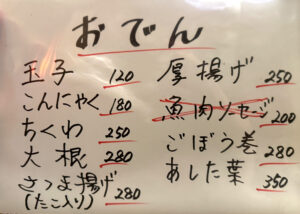 おでん
玉子 120
こんにゃく 180
ちくわ 250
大根 280
さつま揚げ
(たこ入り) 280
厚揚げ 250
魚肉ソーセージ 200
ごぼう巻 280
あした葉 350